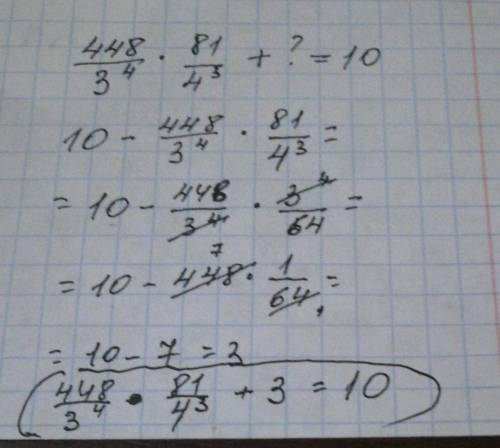 448/3⁴ · 81/4³ + ? = 10
10 - 448/3⁴ · 81/4³ =
= 10 - 448/3⁴ · 3⁴/64 =
= 10 - 448 7 · 1/64 1 =
= 10 - 7 = 3
448/3⁴ · 81/4³ + 3 = 10